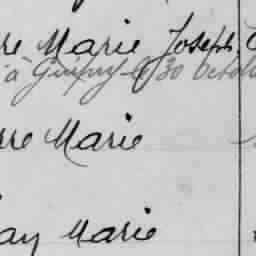 re Marie Joseph
à Guipry le 30 Octob
rre Marie
ay Marie